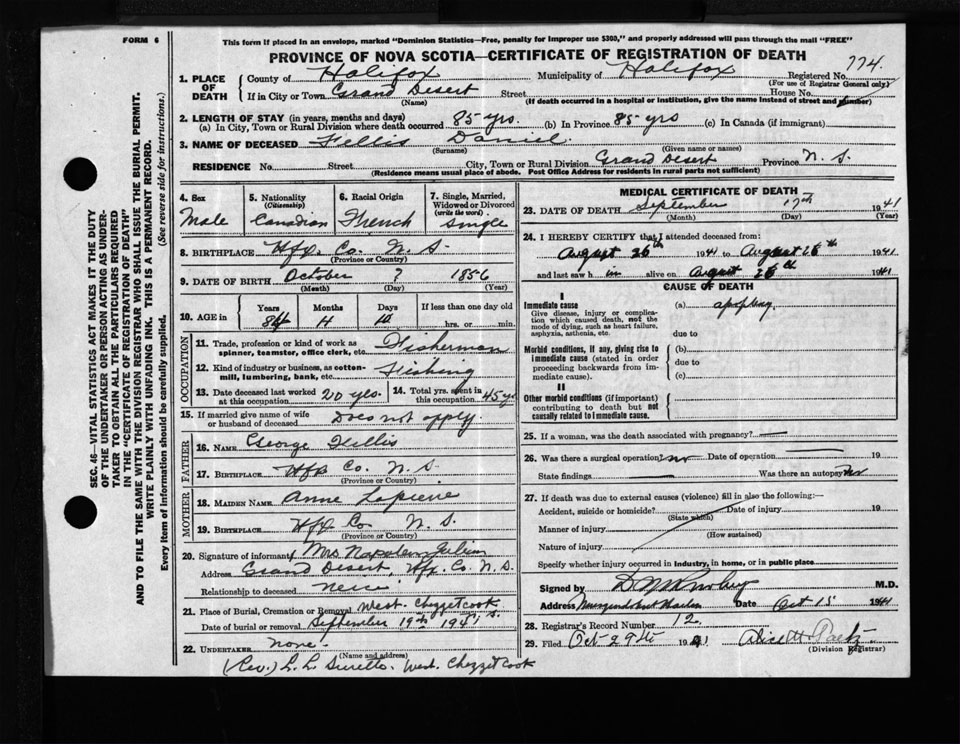 FORM 6
This form if placed in an envelope, marked "Dominion Statistics—Free, penalty for improper use $300," and properly addressed will pass through the mail "FREE"
PROVINCE OF NOVA SCOTIA—CERTIFICATE OF REGISTRATION OF DEATH
SEC. 46—VITAL STATISTICS ACT MAKES IT THE DUTY
OF THE UNDERTAKER OR PERSON ACTING AS UNDER-
TAKER TO OBTAIN ALL THE PARTICULARS REQUIRED
IN THE "CERTIFICATE OF REGISTRATION OF DEATH"
AND TO FILE THE SAME WITH THE DIVISION REGISTRAR WHO SHALL ISSUE THE BURIAL PERMIT.
WRITE PLAINLY WITH UNFADING INK. THIS IS A PERMANENT RECORD.
Every item of information should be carefully supplied. (See reverse side for instructions.)
1. PLACE OF DEATH County of Halifax Municipality of Halifax Registered No. 774
(For use of Registrar General only)
If in City or Town Grand Desert Street House No.
(Name) (If death occurred in a hospital or institution, give the name instead of street and number)
2. LENGTH OF STAY (in years, months and days)
(a) In City, Town or Rural Division where death occurred 85 yrs. (b) In Province 85 yrs (c) In Canada (if immigrant)
3. NAME OF DECEASED Fellis Daniel
(Surname) (Given name or names)
RESIDENCE No. Street City, Town or Rural Division Grand Desert Province N. S.
(Residence means usual place of abode. Post Office Address for residents in rural parts not sufficient)
4. Sex Male
5. Nationality (Citizenship) Canadian
6. Racial Origin French
7. Single, Married, Widowed or Divorced (write the word) Single
8. BIRTHPLACE Hfx. Co. N. S.
(Province or Country)
9. DATE OF BIRTH October ? 1856
(Month) (Day) (Year)
10. AGE in Years 84 Months 11 Days 10 If less than one day old hrs. or min.
OCCUPATION
11. Trade, profession or kind of work as spinner, teamster, office clerk, etc. Fisherman
12. Kind of industry or business, as cotton-mill, lumbering, bank, etc. Fishing
13. Date deceased last worked at this occupation 20 yrs. 14. Total yrs. spent in this occupation 45 yrs
15. If married give name of wife or husband of deceased Does not apply.
FATHER
16. NAME George Fellis
17. BIRTHPLACE Hfx Co. N. S.
(Province or Country)
MOTHER
18. MAIDEN NAME Anne Lapierre
19. BIRTHPLACE Hfx Co. N. S.
(Province or Country)
20. Signature of informant Mrs. Napoleon
Address Grand Desert, Hfx. Co. N. S.
Relationship to deceased
21. Place of Burial, Cremation or Removal West Chezzetcook
Date of burial or removal September 19th 1941
22. UNDERTAKER None.
(Name and address)
(Rev.) L. L. West Chezzetcook
MEDICAL CERTIFICATE OF DEATH
23. DATE OF DEATH September 17th 1941
(Month) (Day) (Year)
24. I HEREBY CERTIFY that I attended deceased from:
August 26th 1941 to August 26th 1941
and last saw h im alive on August 26th 1941
CAUSE OF DEATH
I
Immediate cause
Give disease, injury or complication which caused death, not the mode of dying, such as heart failure, asphyxia, asthenia, etc.
(a) apoplexy
due to
Morbid conditions, if any, giving rise to immediate cause (stated in order proceeding backwards from immediate cause).
(b)
due to
(c)
II
Other morbid conditions (if important) contributing to death but not causally related to immediate cause.
25. If a woman, was the death associated with pregnancy?
26. Was there a surgical operation? no Date of operation 19
State findings Was there an autopsy? no
27. If death was due to external causes (violence) fill in also the following:—
Accident, suicide or homicide? Date of injury 19
(State which)
Manner of injury
(How sustained)
Nature of injury
Specify whether injury occurred in industry, in home, or in public place
Signed by M.D.
Address Musquodoboit Harbor Date Oct 15 1941
28. Registrar's Record Number 12.
29. Filed Oct 29th 1941 Alice M.
(Division Registrar)